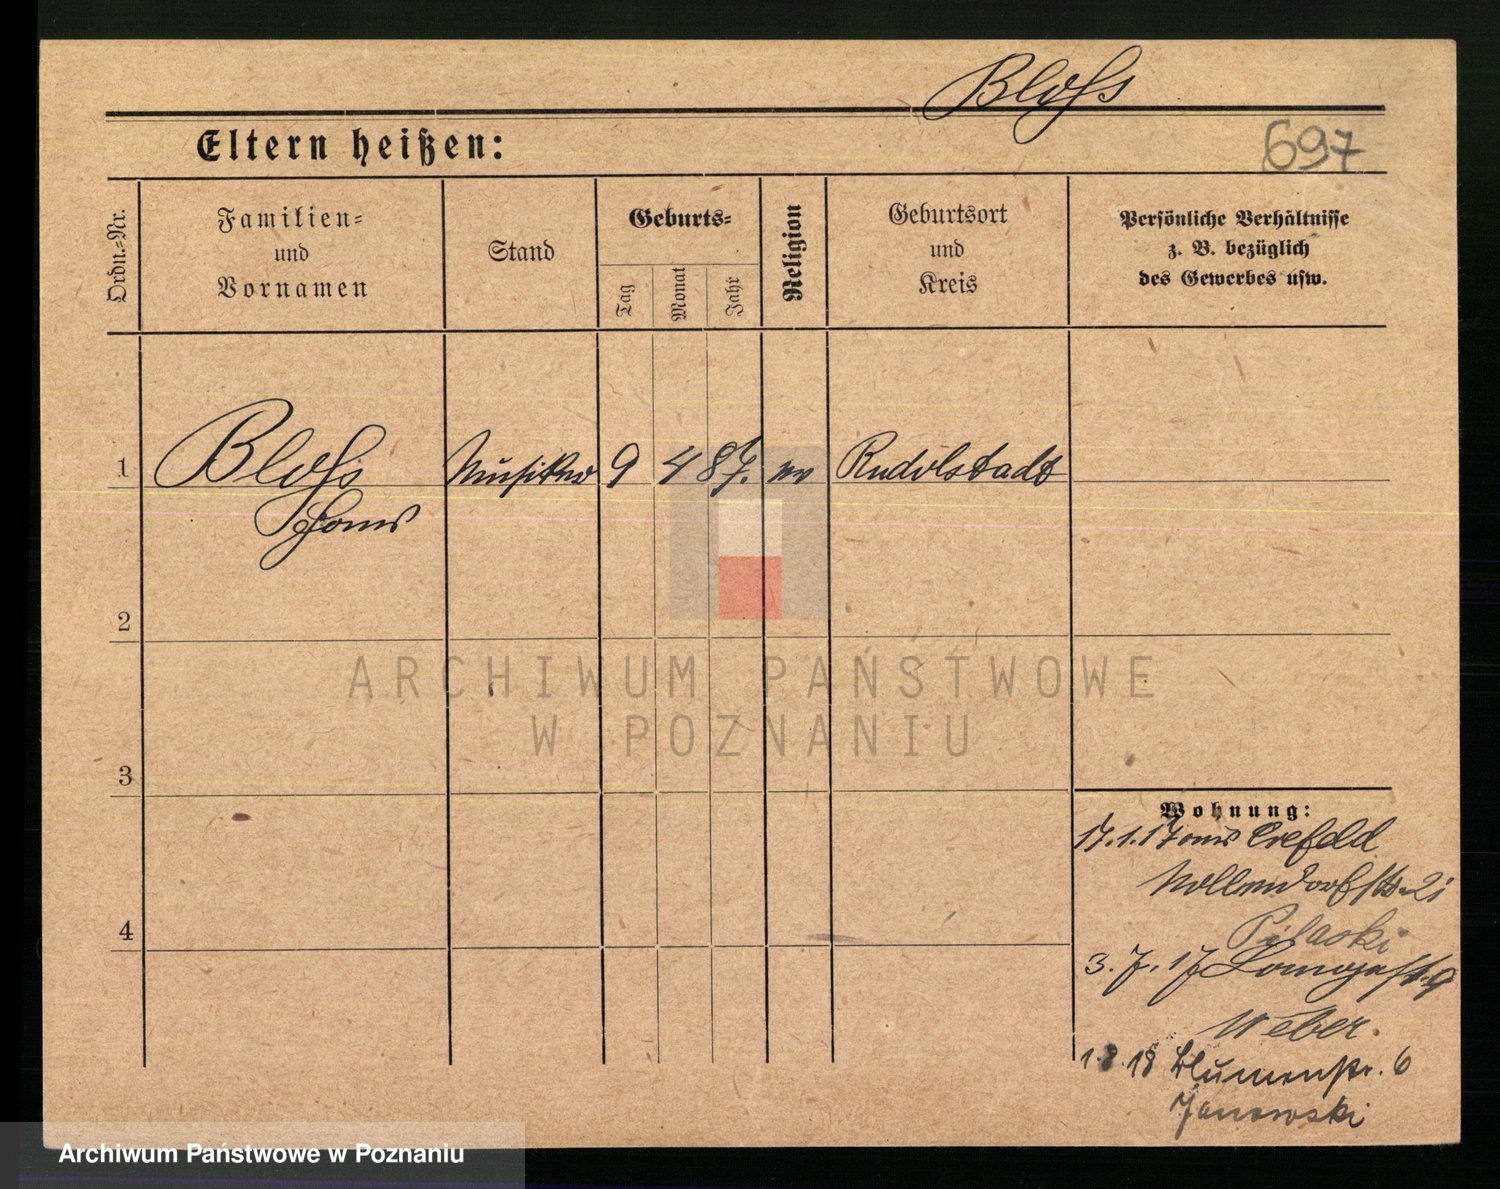 Bloß
Eltern heißen:
697
Ordn.-Nr.
Familien-
und
Vornamen
Stand
Geburts-
Tag
Monat
Jahr
Religion
Geburtsort
und
Kreis
Persönliche Verhältnisse
z. B. bezüglich
des Gewerbes usw.
1
Bloß Musiker 9 4 87. ev Rudolstadt
Hans
2
ARCHIWUM PAŃSTWOWE
W POZNANIU
3
Wohnung:
17.1.17 aus Crefeld
Nollendorfstr. 21
Pilaski
4
3.7.17
Weber.
1.8.18 Blumenstr. 6
Janowski
Archiwum Państwowe w Poznaniu